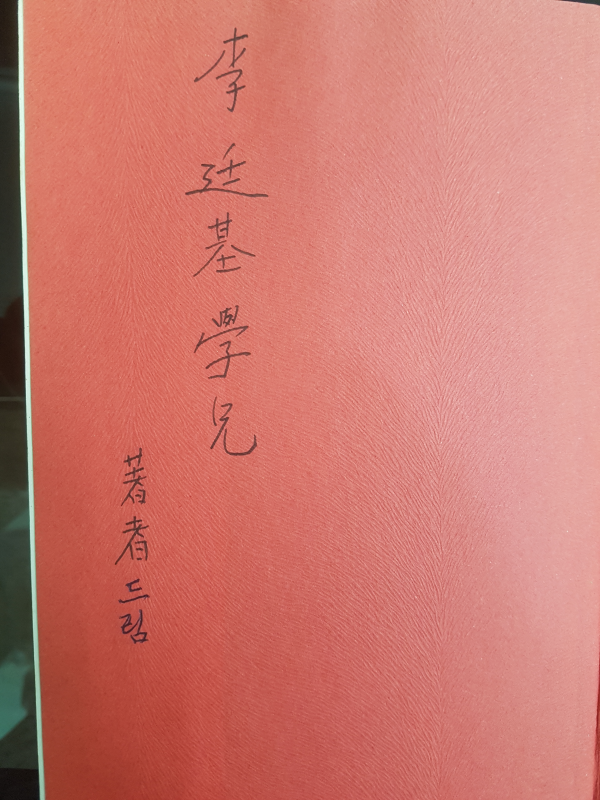 李廷基學兄
著者드림